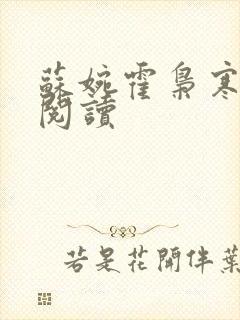 蘇婉霍梟寒
閱讀
若是花開伴葉